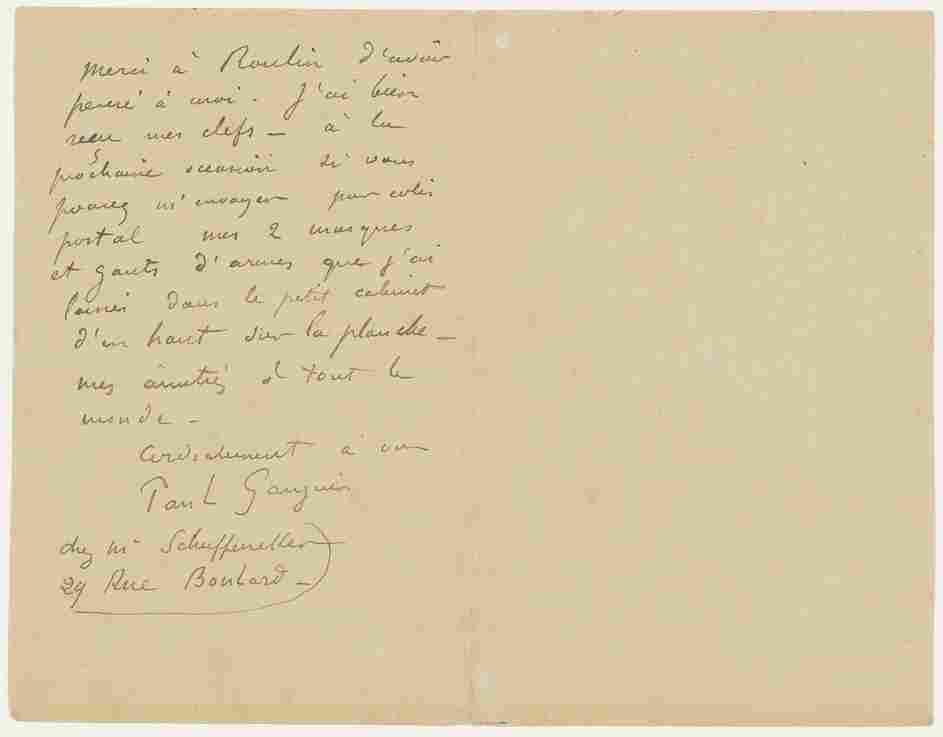 Merci à Roulin d'avoir
pensé à moi. J'ai bien
recu mes clefs — à la
prochaine occasion si vous
pouvez m'envoyer par colis
postal mes 2 masques
et gants d'armes que j'ai
laissés dans le petit cabinet
d'en haut sur la planche —
mes amitiés à tout le
monde —
Cordialement à vous
Paul Gauguin
chez Mr Schuffenecker
29 Rue Boulard —